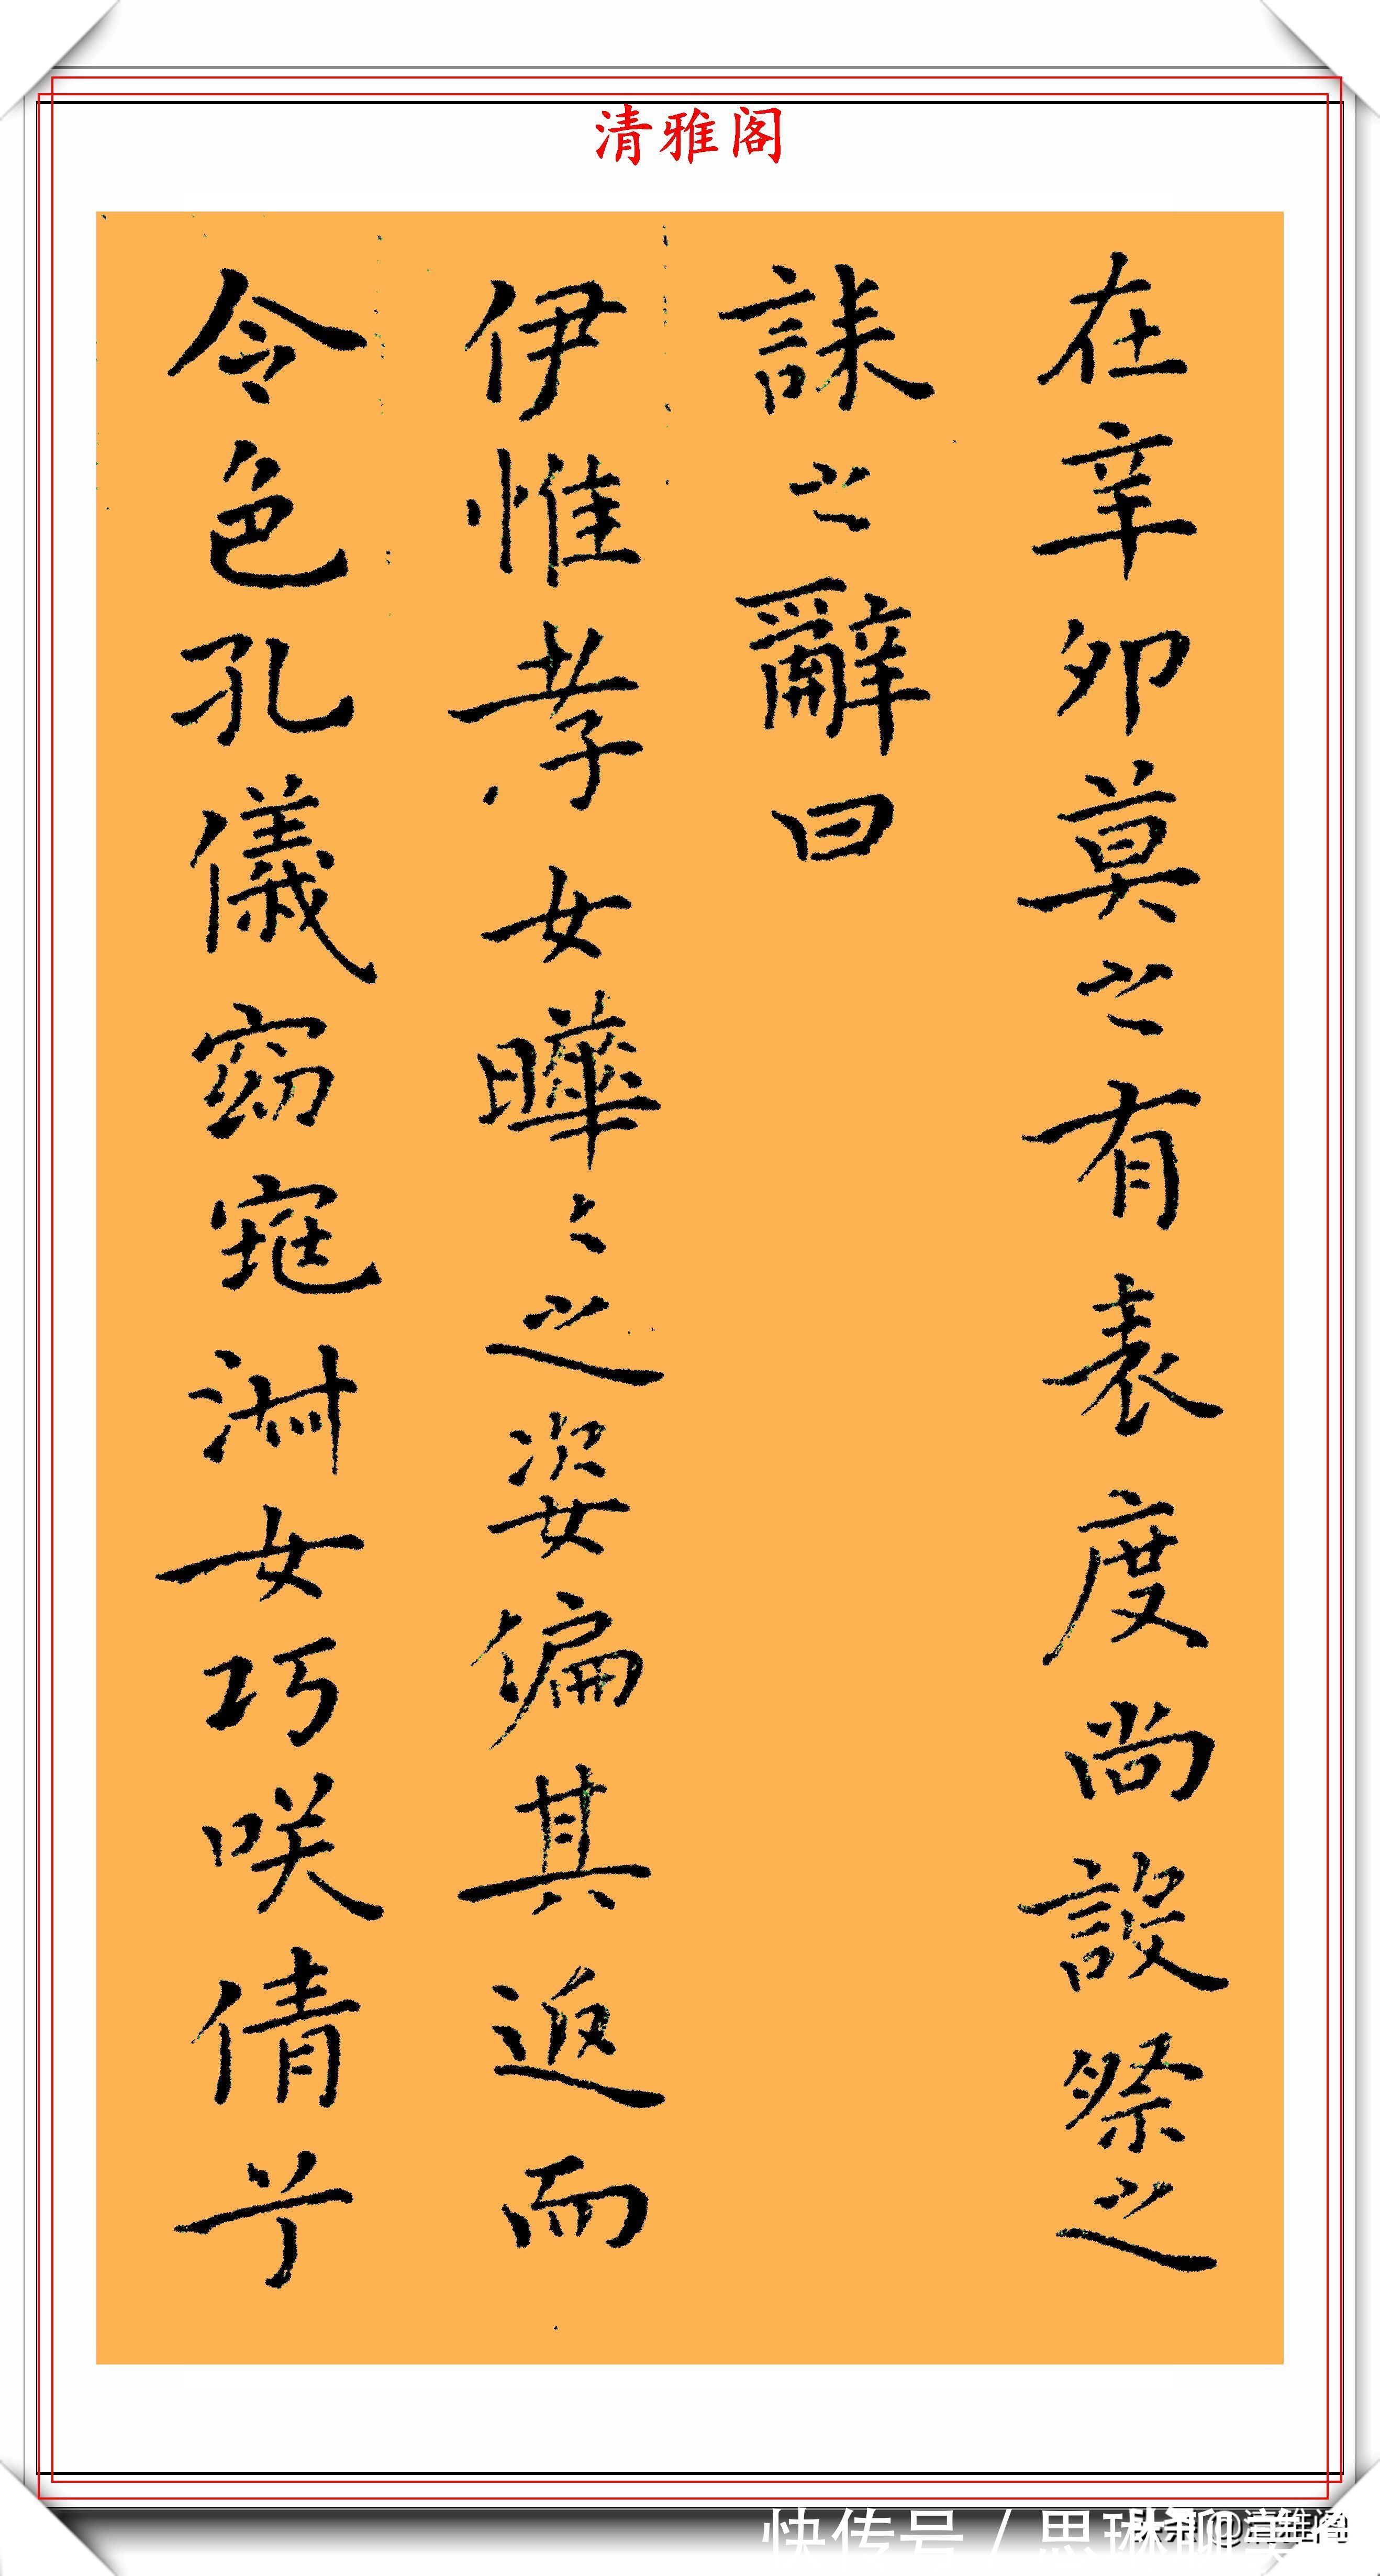 清雅阁
在辛卯莫之有表度尚設祭之
誄之辭曰
伊惟孝女曄〻之姿偏其返而
令色孔儀窈窕淑女巧咲倩兮
快传号/思琳聊美食